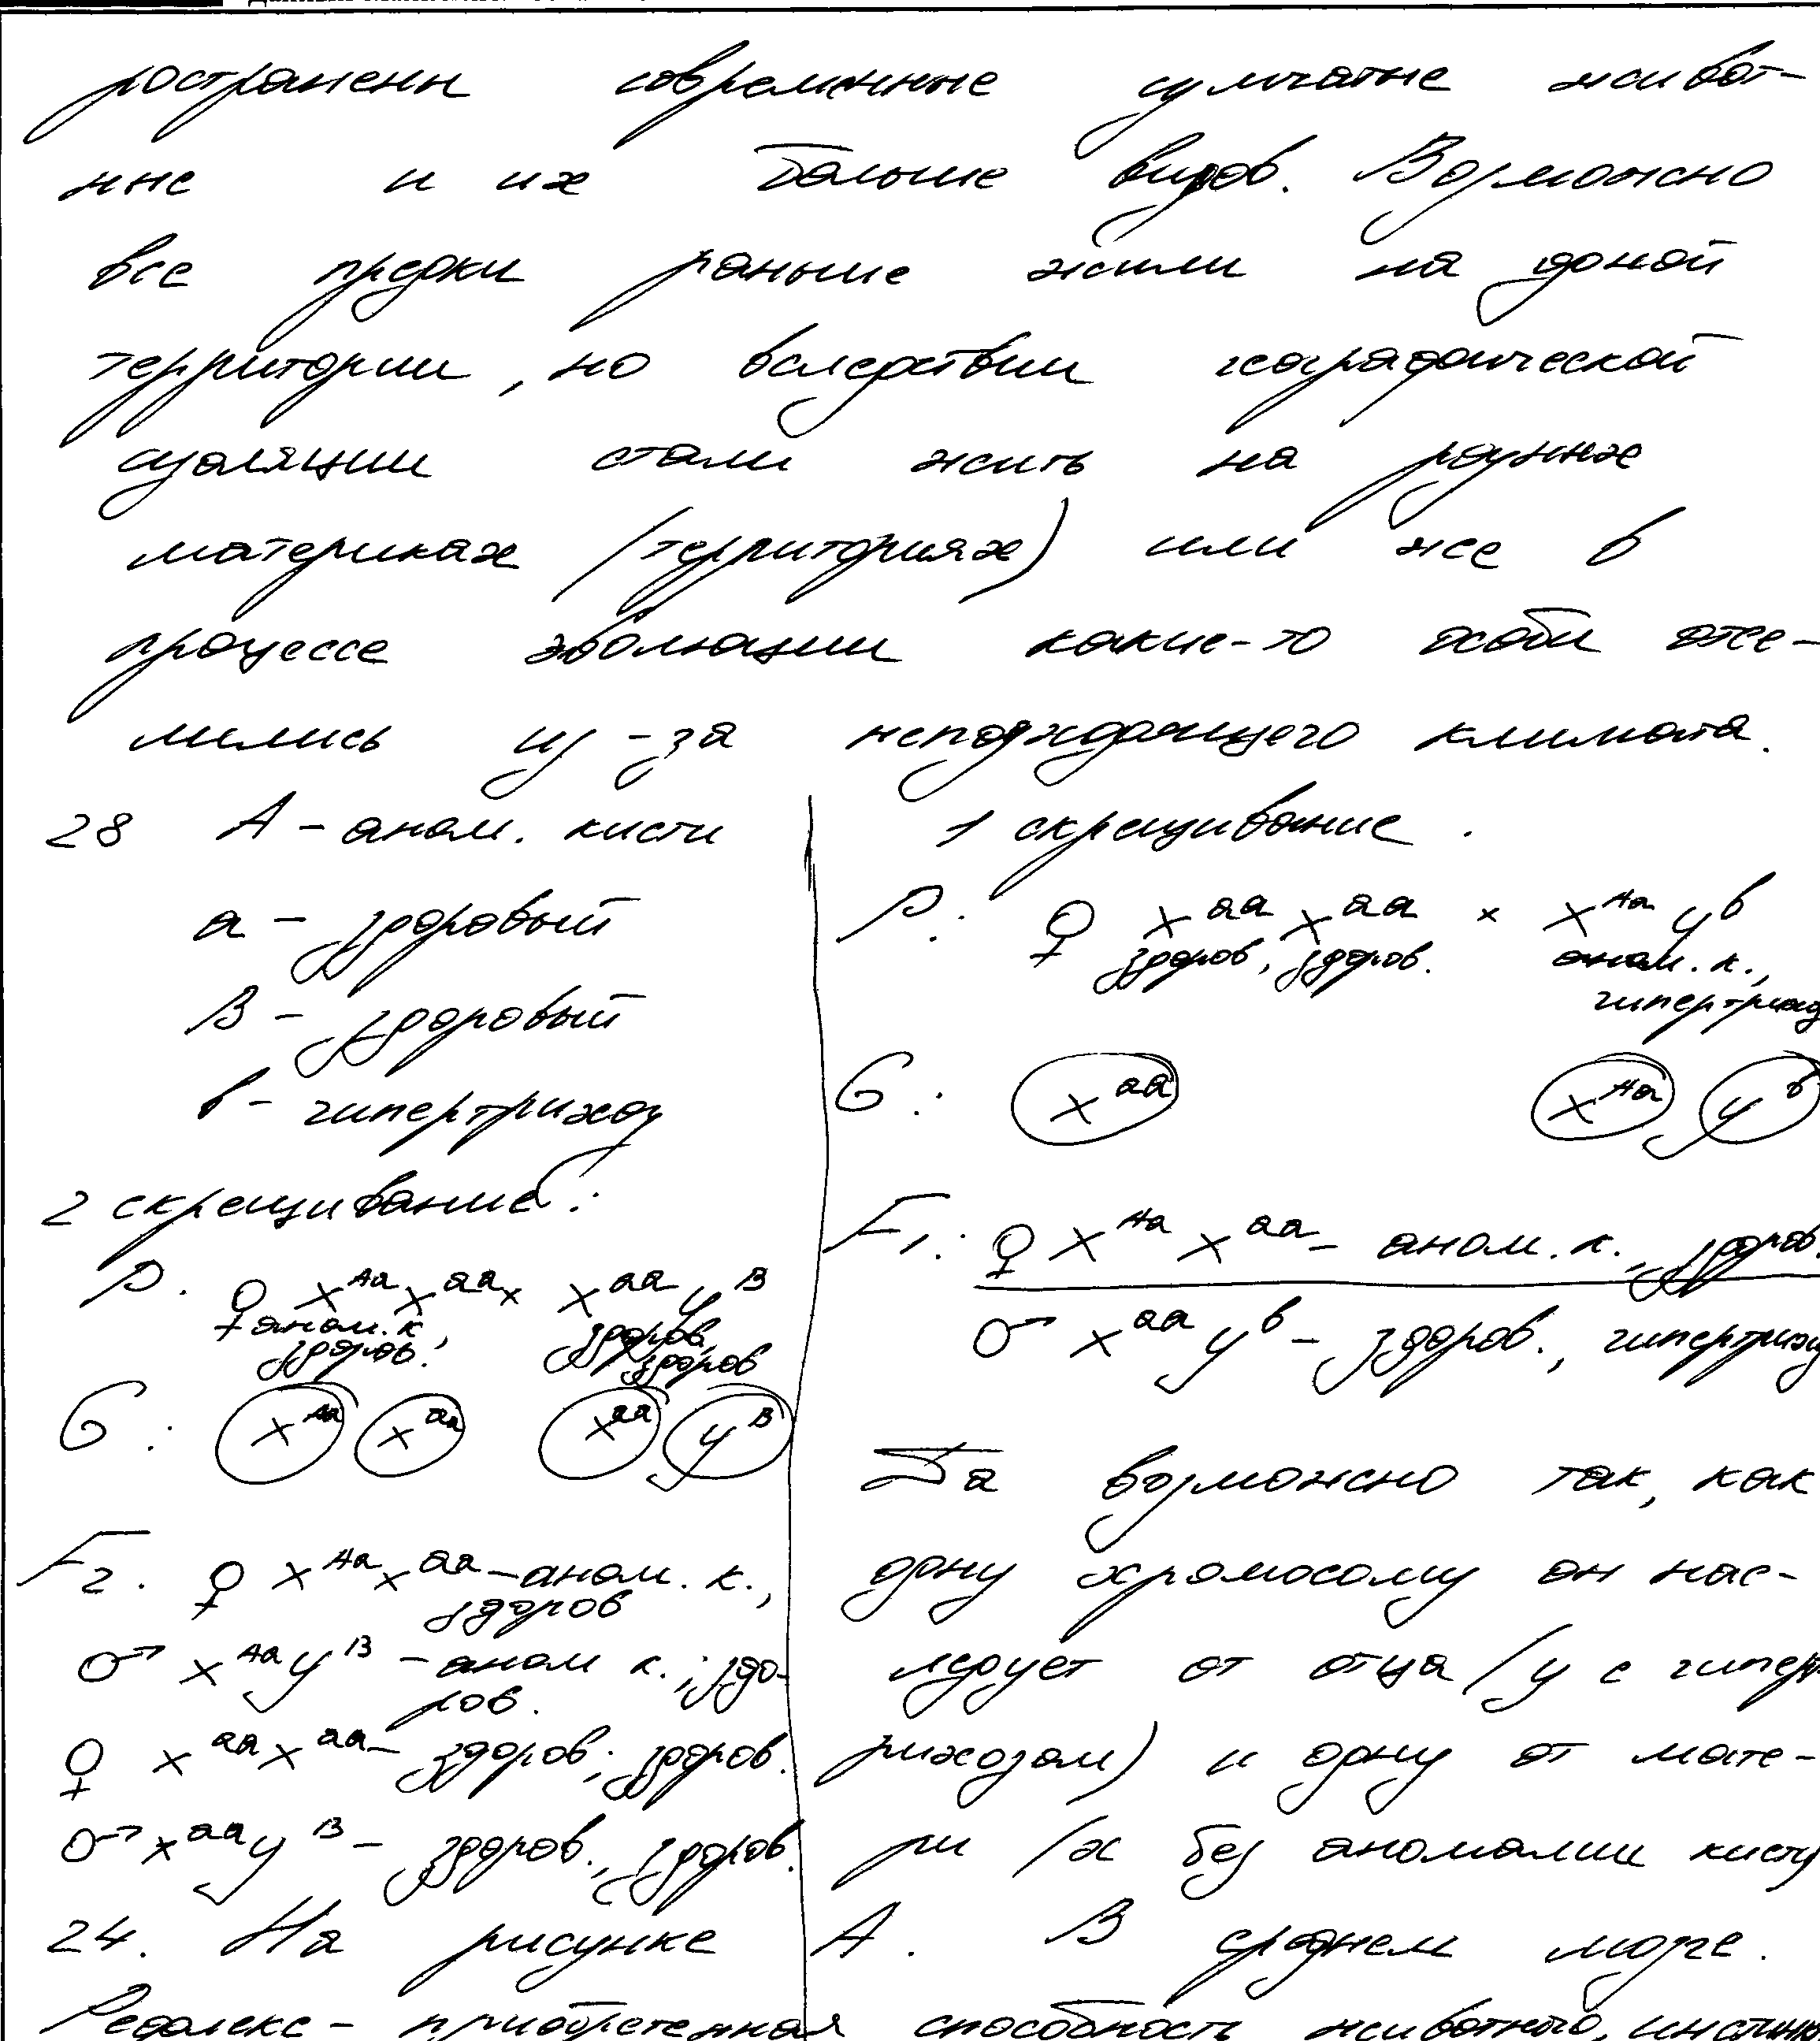 ространены современные сумчатые живот-
ные и их больше видов. Возможно
все предки раньше жили на одной
территории, но вследствии географической
изоляции стали жить на разных
материках (территориях) или же в
процессе эволюции какие-то особи отсе-
лились из-за неподходящего климата.
28 А - аном. кисти
а - здоровый
В - здоровый
в - гипертрихоз
2 скрещивание:
P. ♀ X^Aa X^aa × X^aa Y^B
аном. к., здоров. здоров, здоров
G: X^Aa X^aa X^aa Y^B
F2. ♀ X^Aa X^aa - аном. к.,
здоров
♂ X^Aa Y^B - аном к.; здо-
ров.
♀ X^aa X^aa - здоров; здоров.
♂ X^aa Y^B - здоров., здоров.
1 скрещивание.
P: ♀ X^aa X^aa × X^Aa Y^в
здоров, здоров. аном. к.,
G: X^aa X^Aa Y^в
F1: ♀ X^Aa X^aa - аном. к., здоров.
♂ X^aa Y^в - здоров.,
Да возможно так, как
одну хромосому он нас-
ледует от отца (у с гиперт
рихозом) и одну от мате-
ри (х без аномалии кисти
24. На рисунке А. В среднем море.
Рефлекс - приобретенная способность животного,